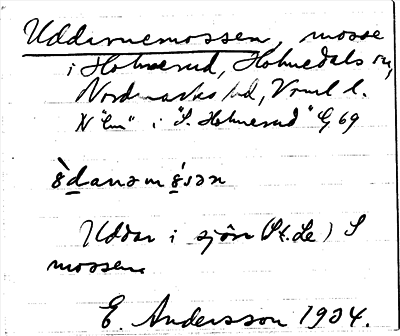 Uddarnemossen, mosse
i Holmerud, Holmedals sn,
Nordmarks hd, Vrml l.
N "Em" i "S. Holmerud" G 69
ò̀danəmósən
Uddar i sjön (St. Le) S
mossen.
E. Andersson 1934.